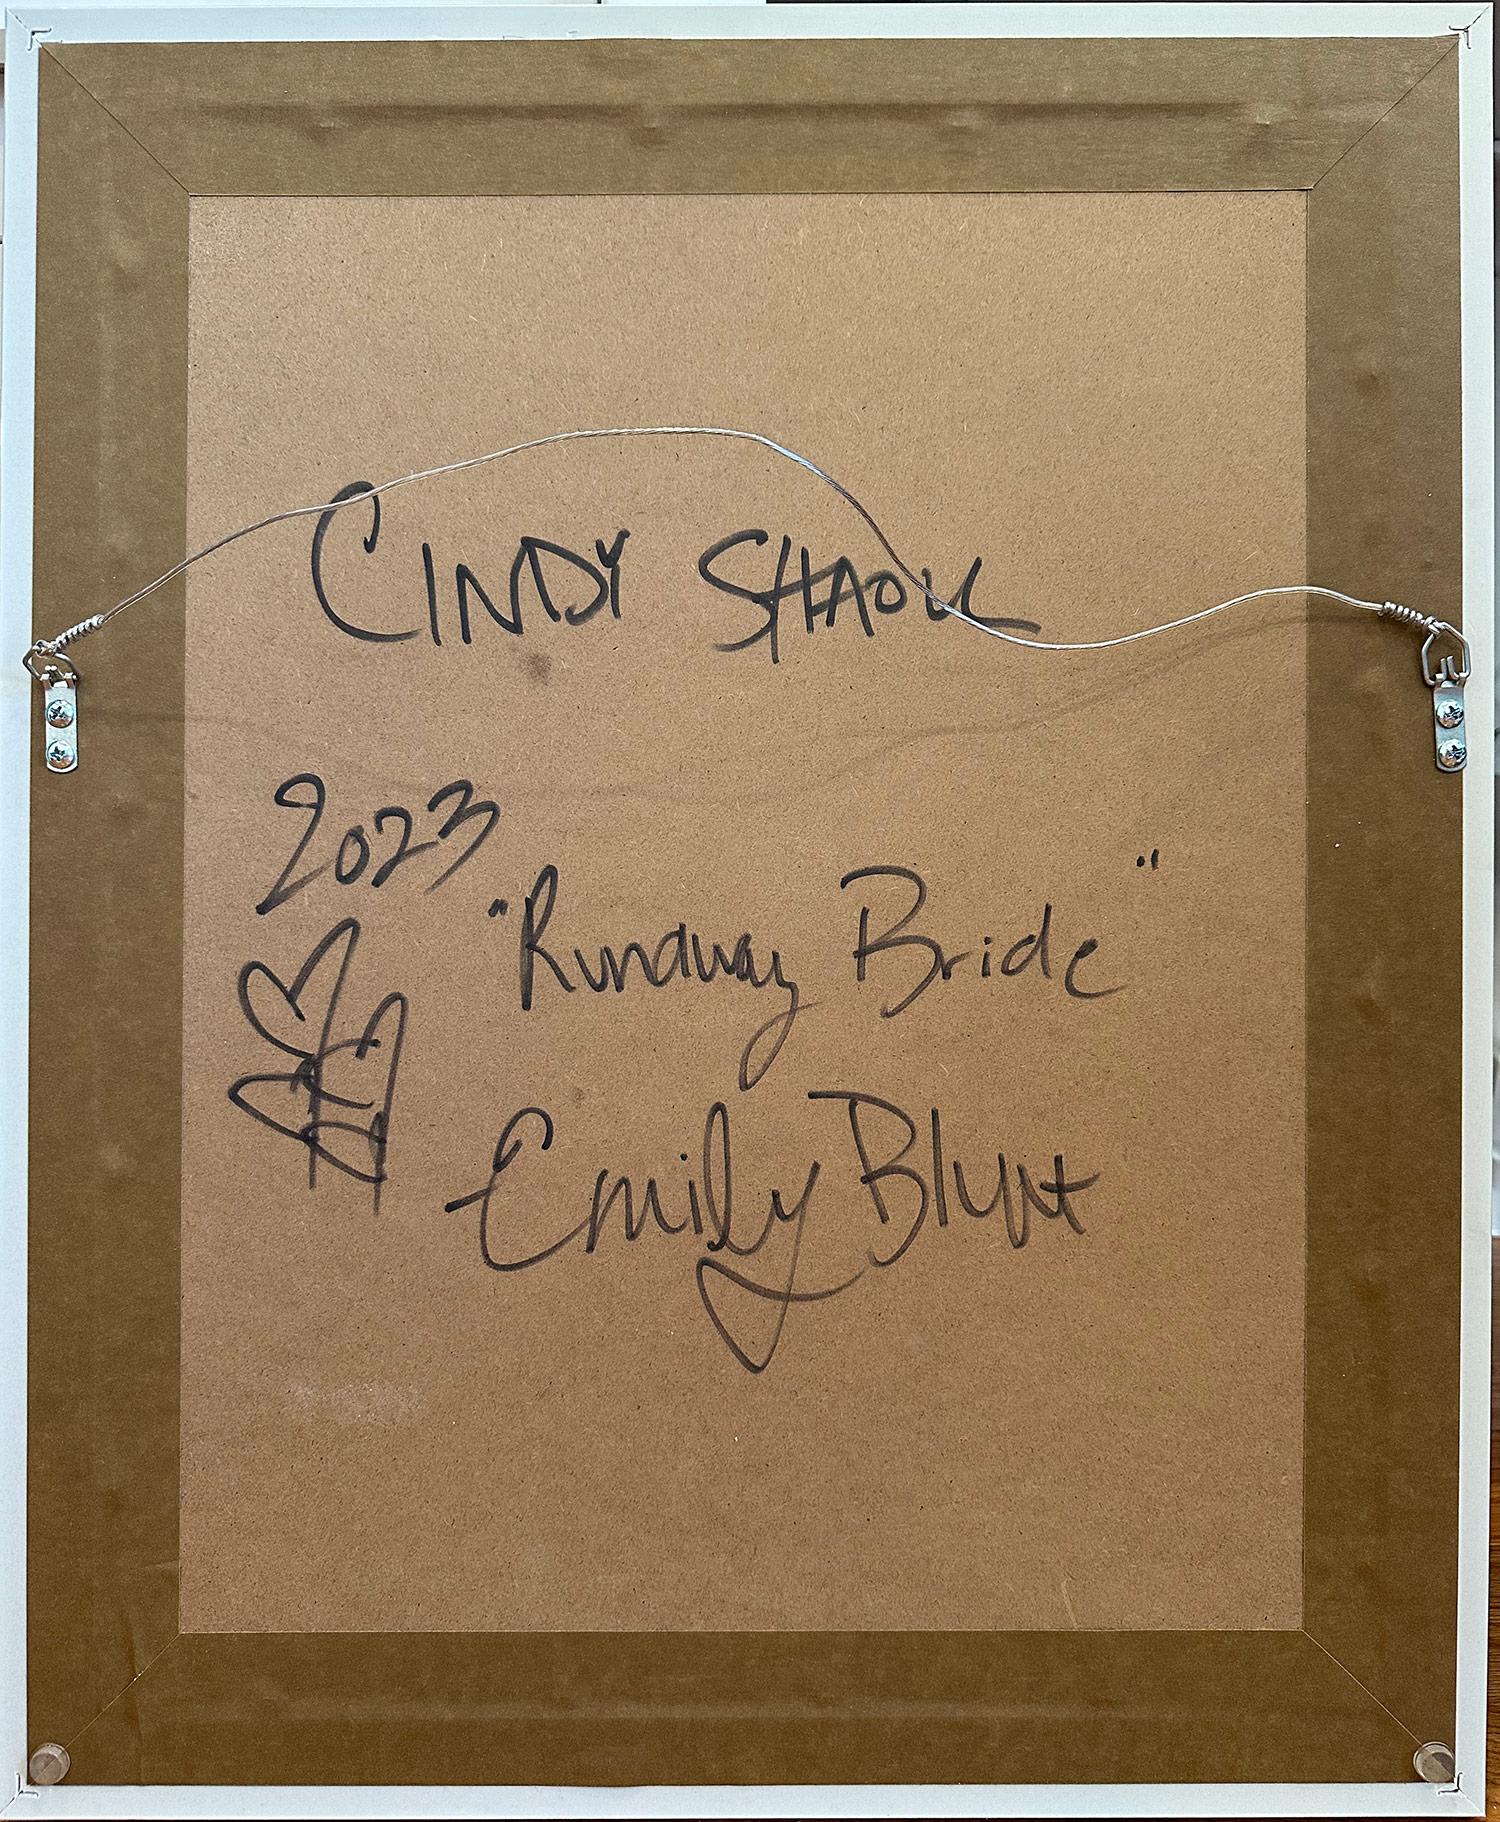 CINDY SHAOUL
2023
"Runaway Bride"
Emily Blunt